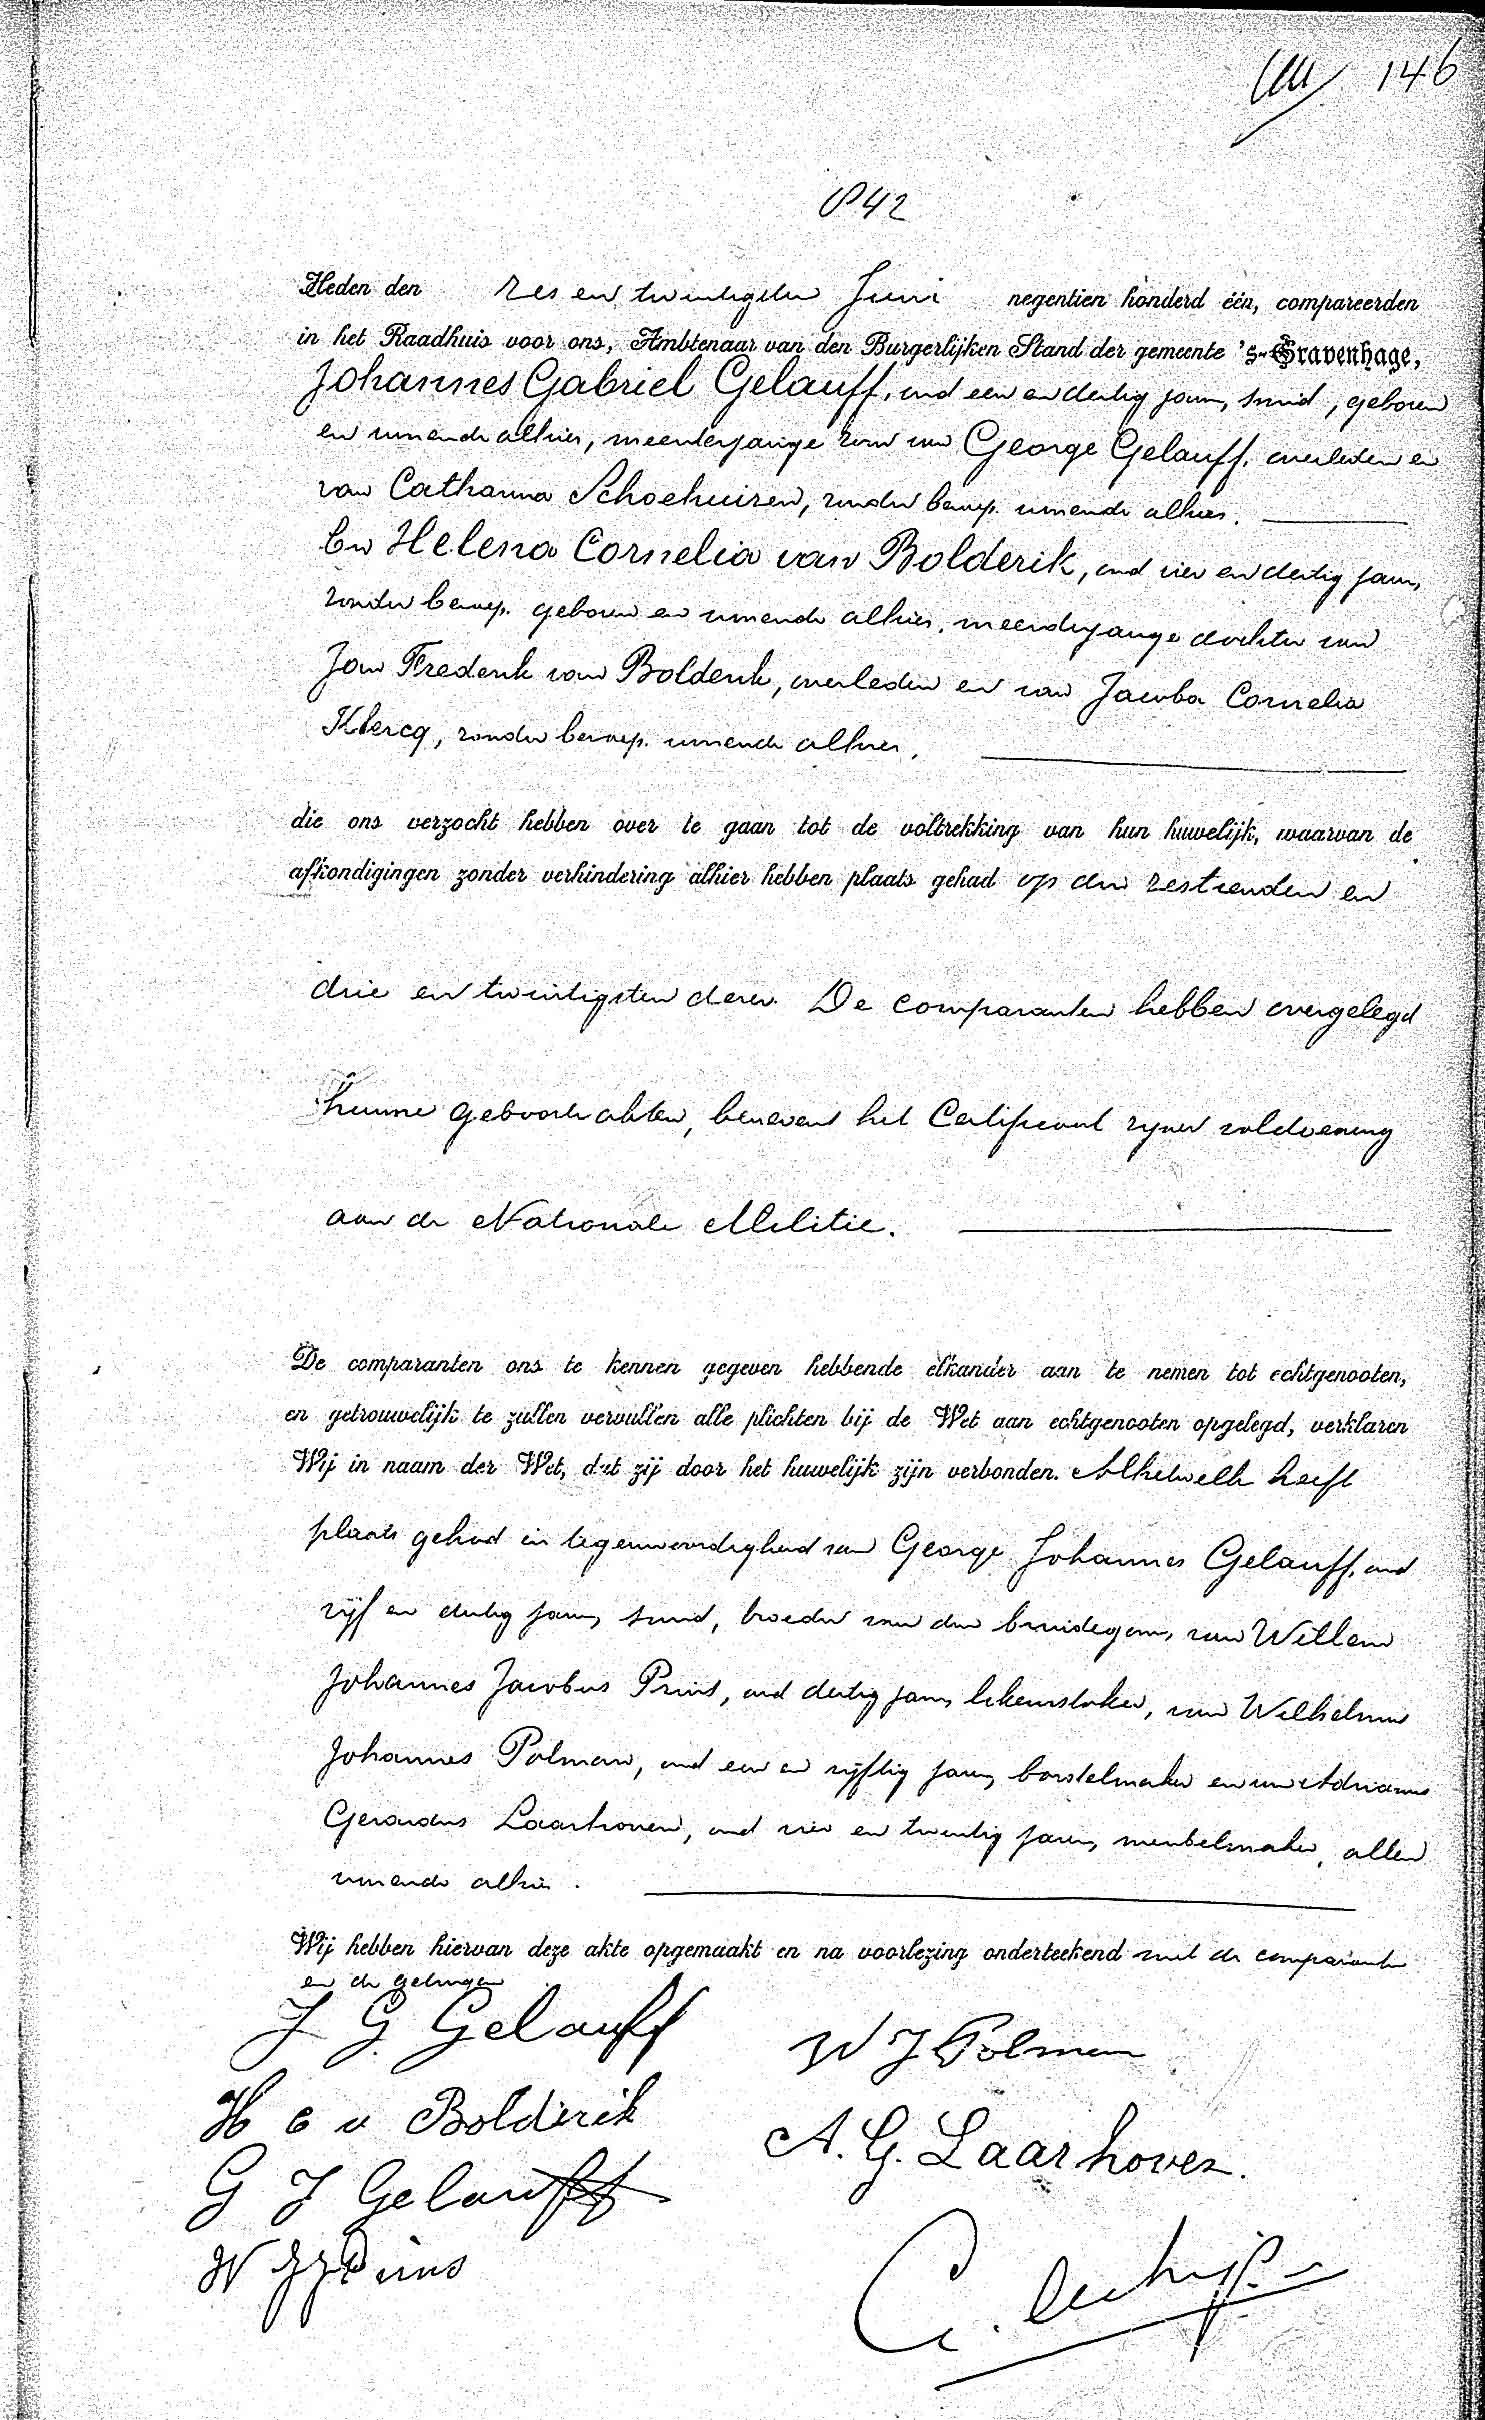 146
842
Heden den zes en twintigsten Juni negentien honderd één, compareerden
in het Raadhuis voor ons, Ambtenaar van den Burgerlijken Stand der gemeente 's-Gravenhage,
Johannes Gabriel Gelauff, oud een en dertig jaren, smid, geboren
en wonende alhier, meerderjarige zoon van George Gelauff, overleden en
van Catharina Schoehuizen, zonder beroep, wonende alhier.
En Helena Cornelia van Bolderik, oud vier en dertig jaren,
zonder beroep, geboren en wonende alhier, meerderjarige dochter van
Jan Frederik van Bolderik, overleden en van Jacoba Cornelia
Klercq, zonder beroep, wonende alhier,
die ons verzocht hebben over te gaan tot de voltrekking van hun huwelijk, waarvan de
afkondigingen zonder verhindering alhier hebben plaats gehad op den zestienden en
drie en twintigsten dezer. De comparanten hebben overgelegd
hunne geboorteakten, benevens het Certificaat zijner voldoening
aan de Nationale Militie.
De comparanten ons te kennen gegeven hebbende elkander aan te nemen tot echtgenooten,
en getrouwelijk te zullen vervullen alle plichten bij de Wet aan echtgenooten opgelegd, verklaren
Wij in naam der Wet, dat zij door het huwelijk zijn verbonden. Alhetwelk heeft
plaats gehad in tegenwoordigheid van George Johannes Gelauff, oud
vijf en dertig jaren, smid, broeder van den bruidegom, van Willem
Johannes Jacobus Prins, oud dertig jaren, van Wilhelmus
Johannes Polman, oud een en vijftig jaren, borstelmaker en van Adrianus
Gerardus Laarhoven, oud vier en twintig jaren, meubelmaker, allen
wonende alhier.
Wij hebben hiervan deze akte opgemaakt en na voorlezing onderteekend met de comparanten
en de getuigen
J G Gelauff
W J Polman
H C v Bolderik
A. G. Laarhoven.
G J Gelauff
W J J Prins